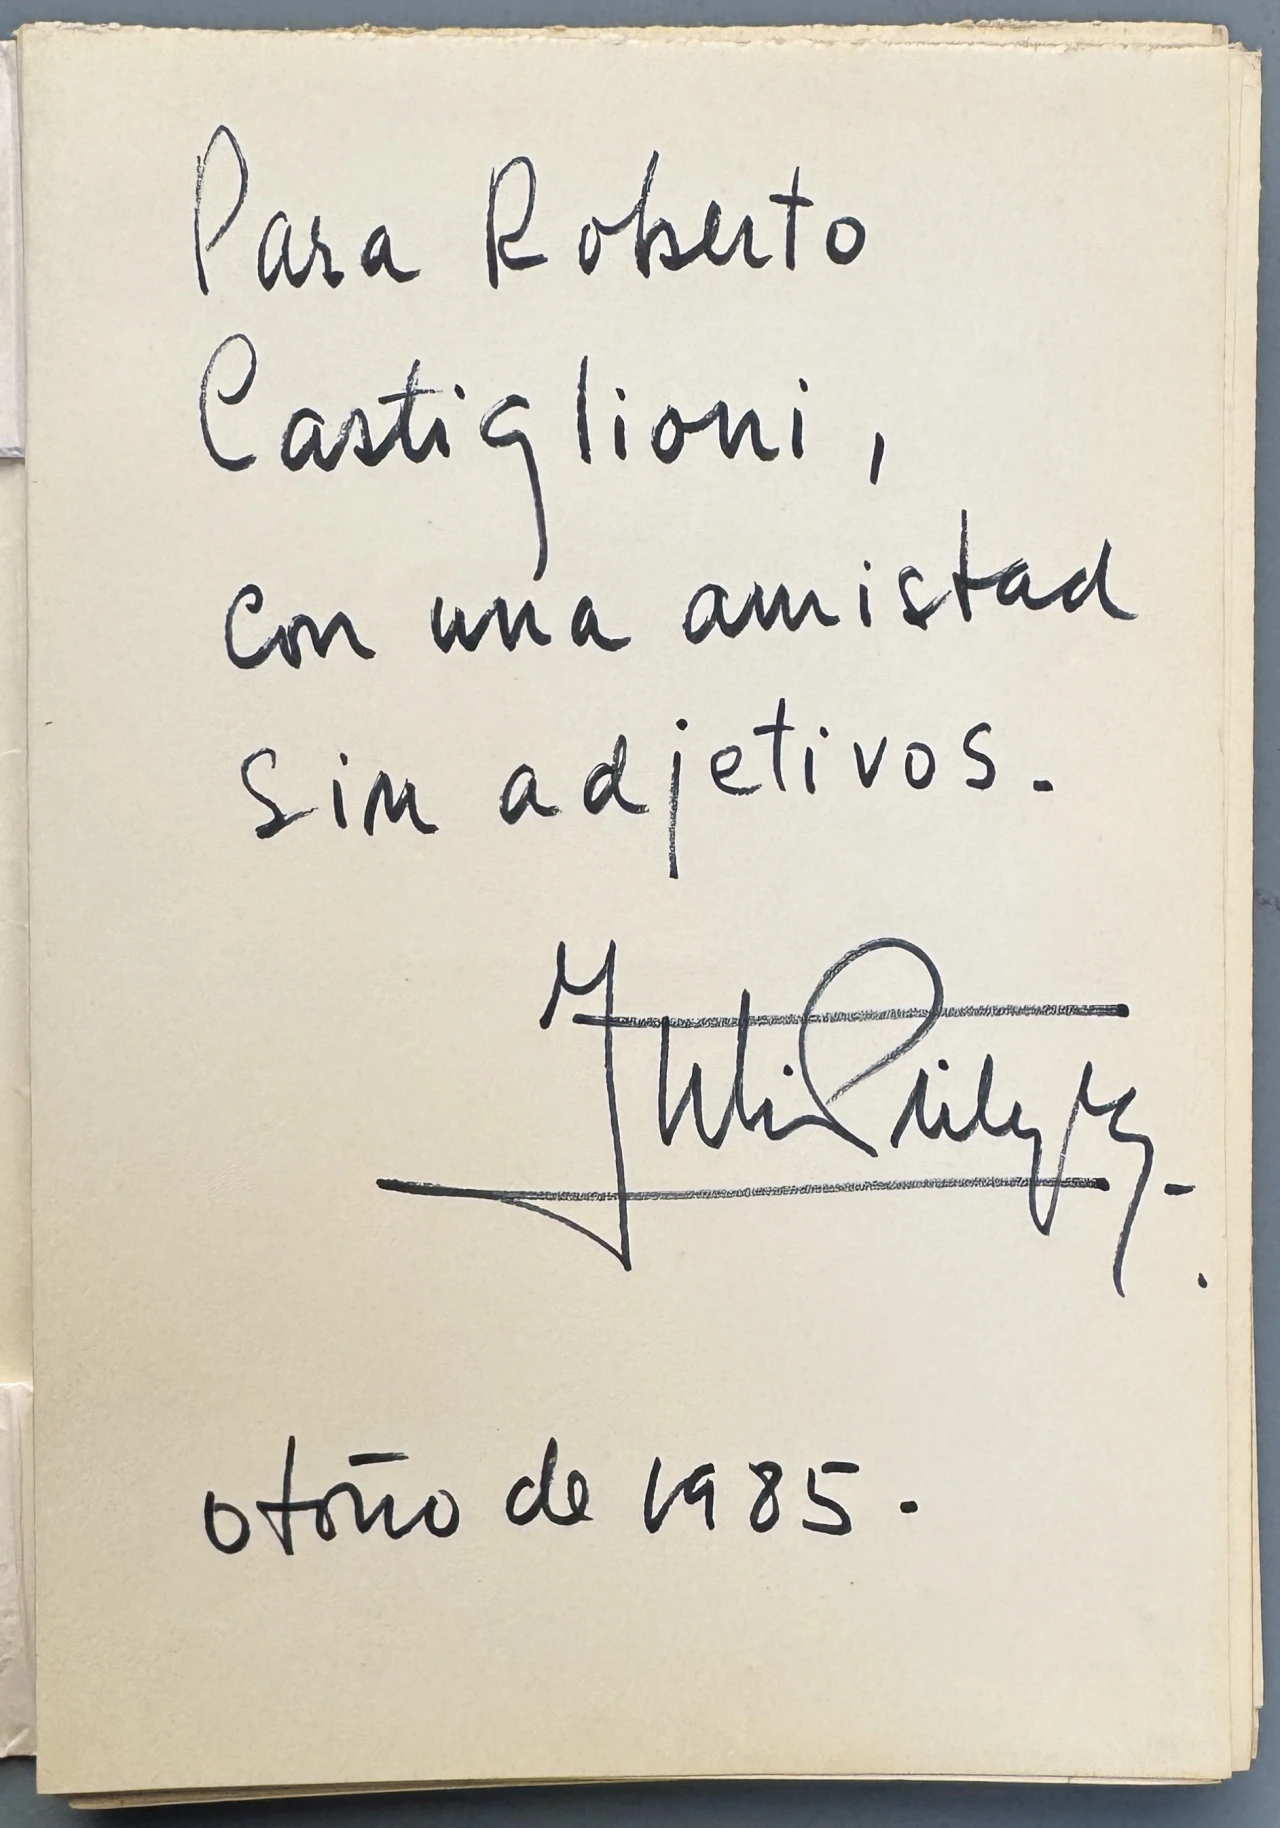 Para Roberto
Castiglioni,
con una amistad
sin adjetivos.
otoño de 1985.